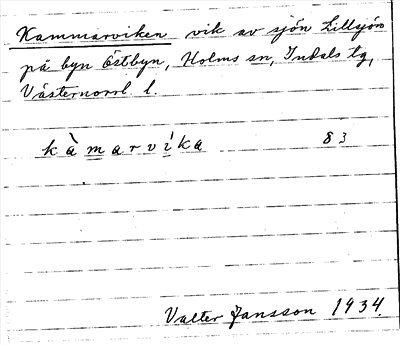 Kammarviken vik av sjön Lillsjön
på byn Östbyn, Holms sn, Indals tg,
Västernorrl l.
kàmarvíka 83
Valter Jansson 1934.